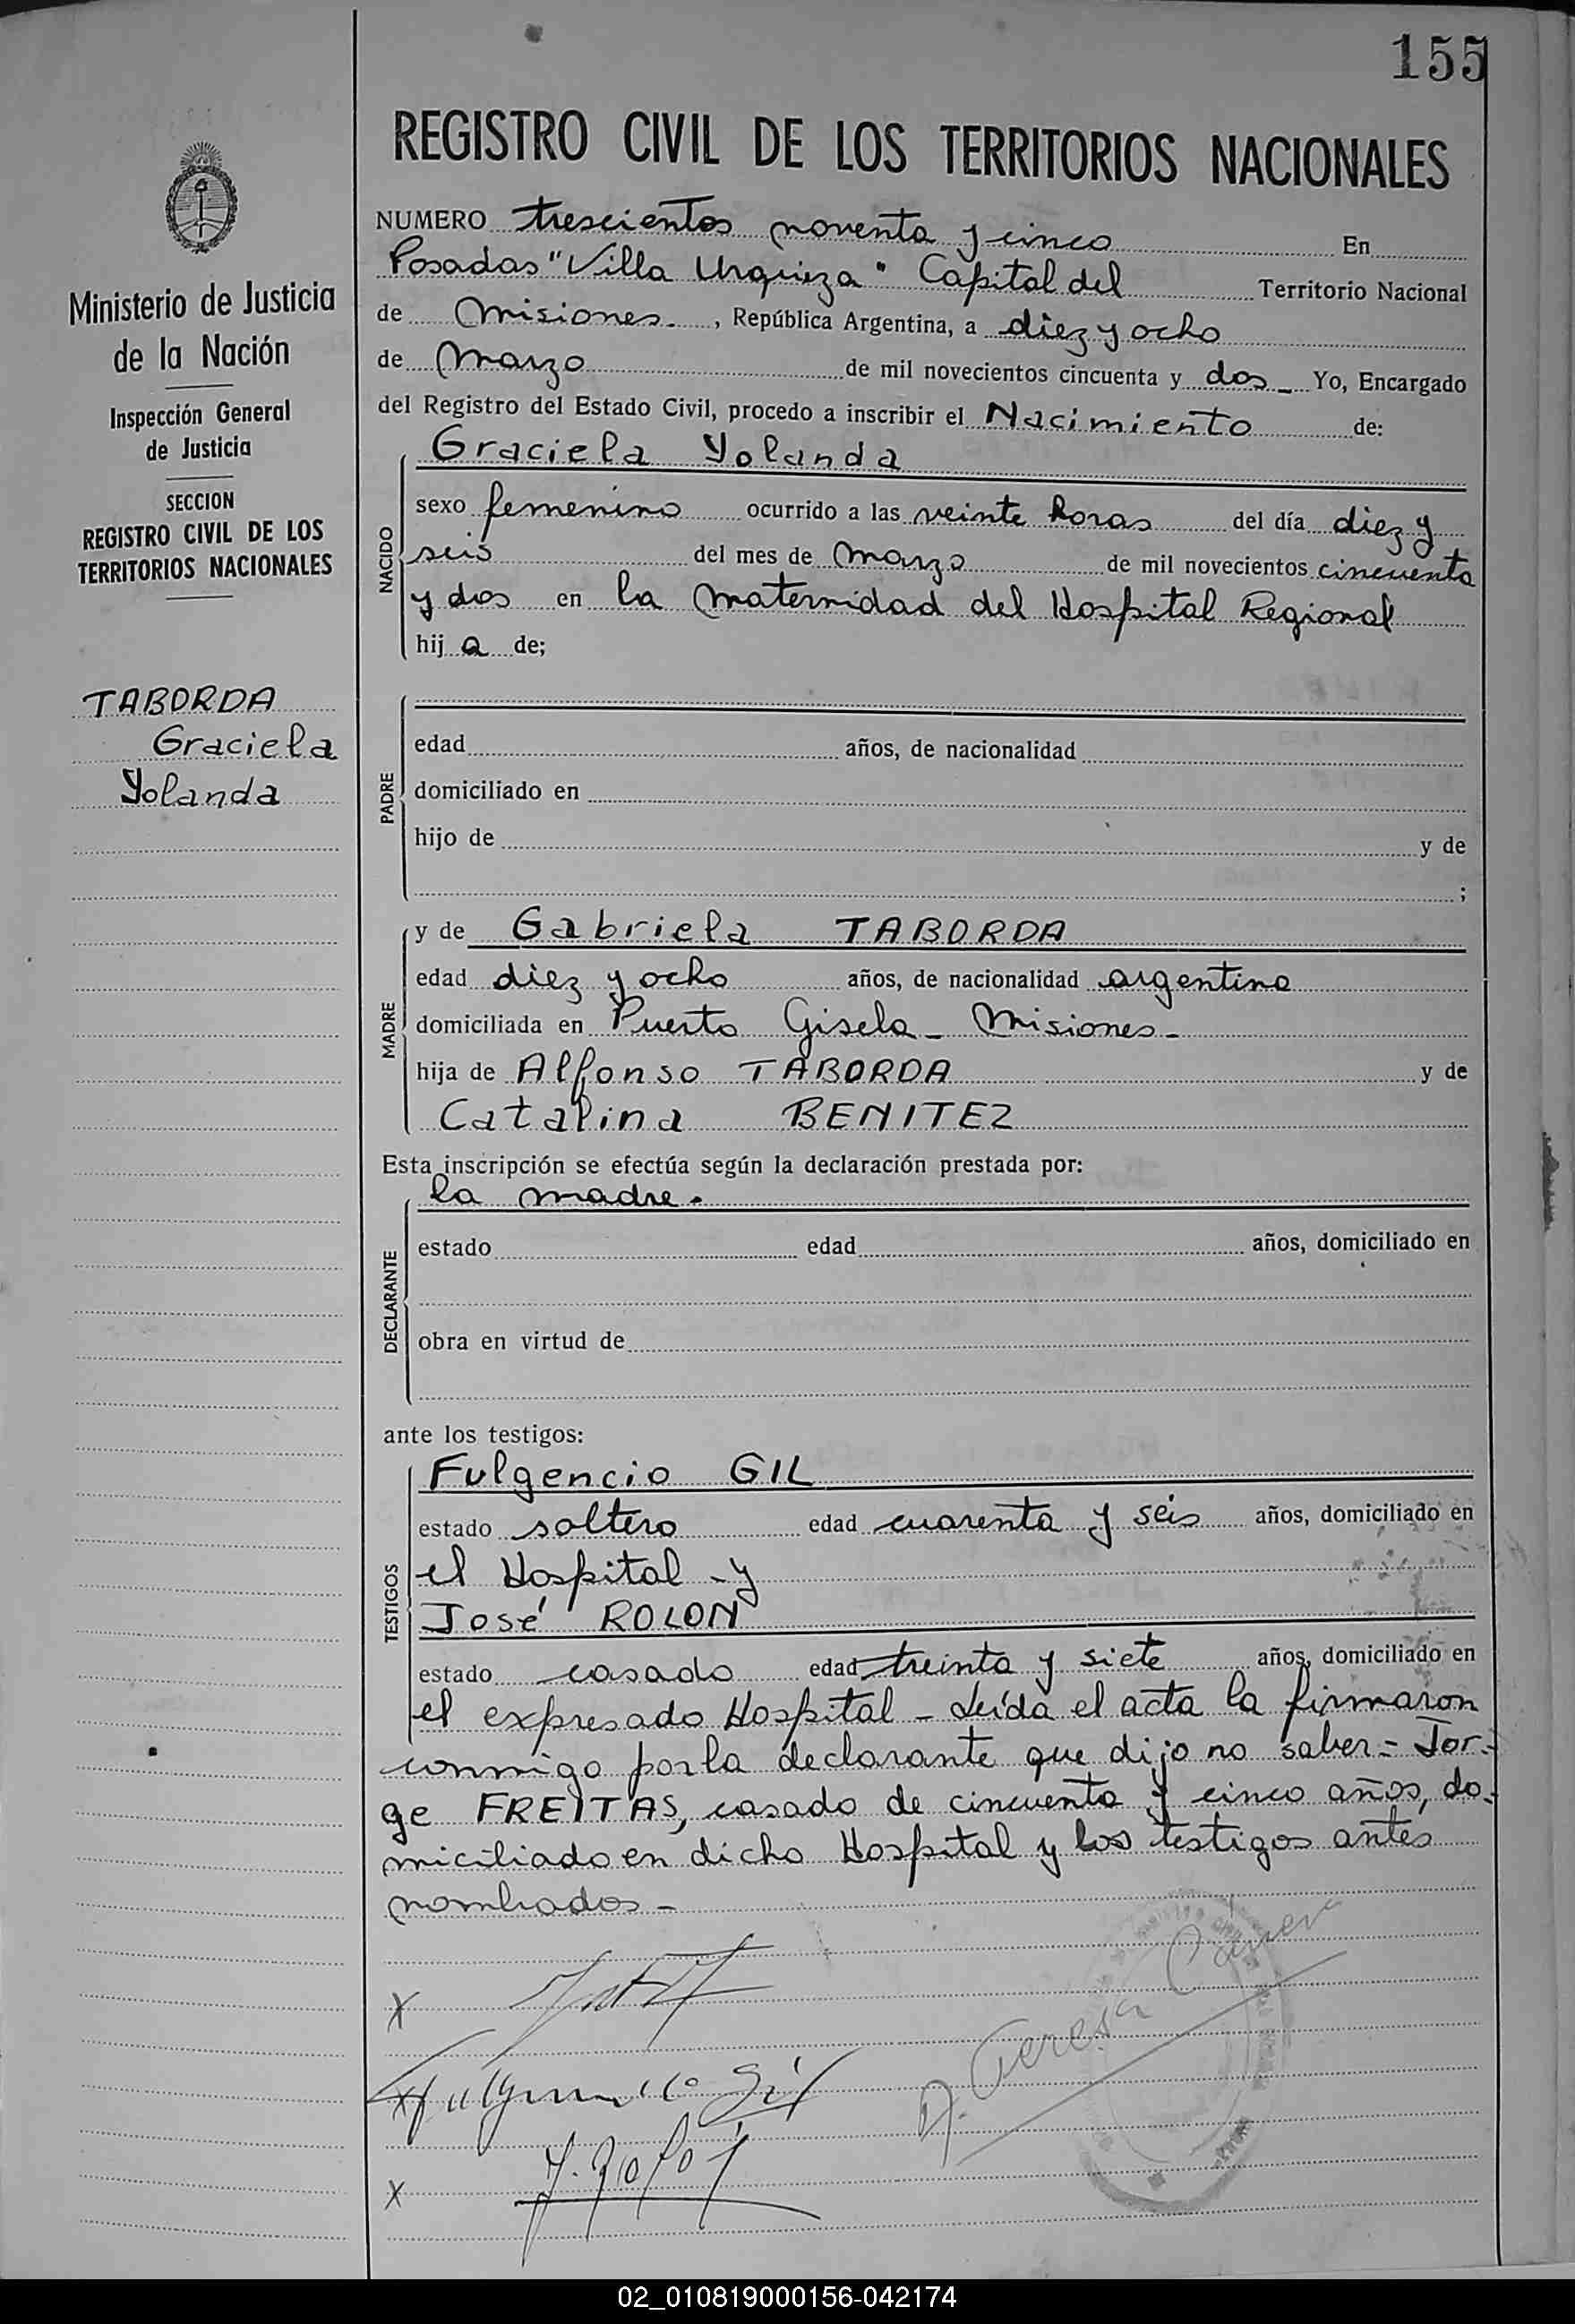 155
REGISTRO CIVIL DE LOS TERRITORIOS NACIONALES
Ministerio de Justicia
de la Nación
Inspección General
de Justicia
SECCION
REGISTRO CIVIL DE LOS
TERRITORIOS NACIONALES
TABORDA
Graciela
Yolanda
NUMERO trescientos noventa y cinco En
Posadas "Villa Urquiza" Capital del Territorio Nacional
de Misiones. , República Argentina, a diez y ocho
de Marzo de mil novecientos cincuenta y dos - Yo, Encargado
del Registro del Estado Civil, procedo a inscribir el Nacimiento de:
Graciela Yolanda
NACIDO
sexo femenino ocurrido a las veinte horas del día diez y
seis del mes de Marzo de mil novecientos cincuenta
y dos en la Maternidad del Hospital Regional
hij a de;
PADRE
edad años, de nacionalidad
domiciliado en
hijo de y de
;
MADRE
y de Gabriela TABORDA
edad diez y ocho años, de nacionalidad argentina
domiciliada en Puerto Gisela - Misiones -
hija de Alfonso TABORDA y de
Catalina BENITEZ
Esta inscripción se efectúa según la declaración prestada por:
la madre.
DECLARANTE
estado edad años, domiciliado en
obra en virtud de
ante los testigos:
TESTIGOS
Fulgencio GIL
estado soltero edad cuarenta y seis años, domiciliado en
el Hospital - y
José ROLON
estado casado edad treinta y siete años, domiciliado en
el expresado Hospital - Leída el acta la firmaron
conmigo por la declarante que dijo no saber = Jor-
ge FREITAS, casado de cincuenta y cinco años, do-
miciliado en dicho Hospital y los testigos antes
nombrados -
X
X Fulgencio Gil
X J. Rolón
Teresa
02_010819000156-042174